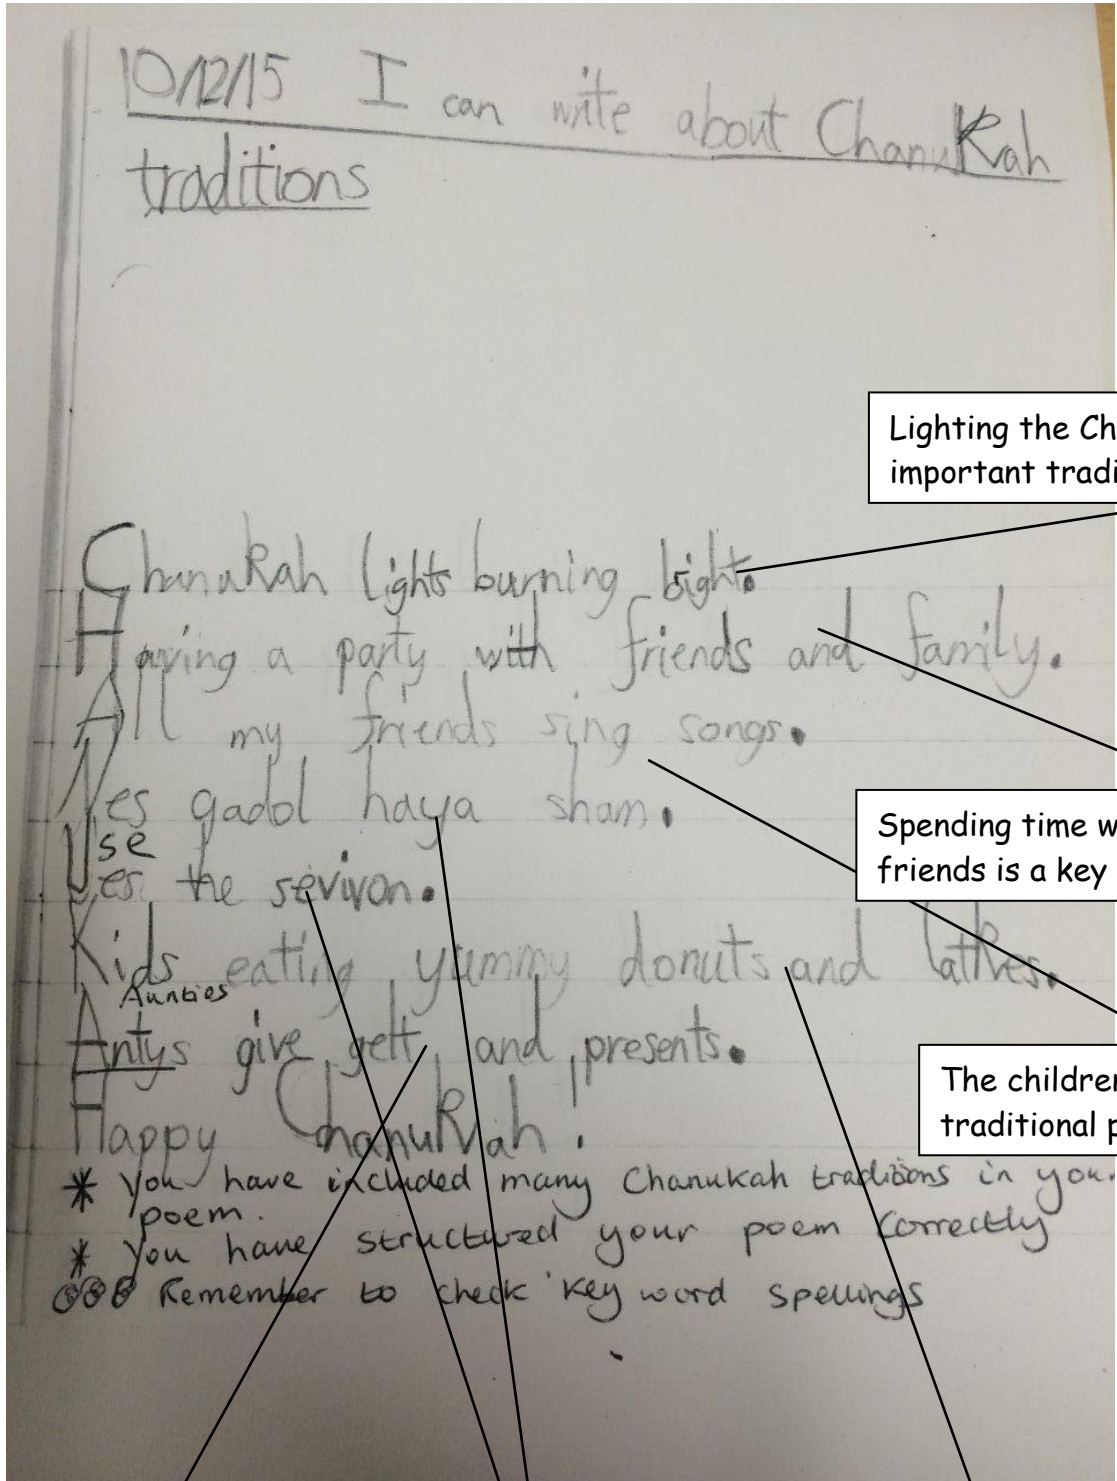 10/12/15 I can write about Chanukah
traditions
Lighting the Ch
important tradi
Chanukah lights burning bight.
Having a party with friends and family.
All my friends sing songs.
Nes gadol haya sham.
Spending time w
friends is a key
Use
es the sevivon.
Kids eating yummy donuts and latkes.
Aunties
Antys give gelt and presents.
The children
traditional p
Happy Chanukah!
* You have included many Chanukah traditions in you
poem.
* You have structured your poem correctly
Remember to check key word spellings